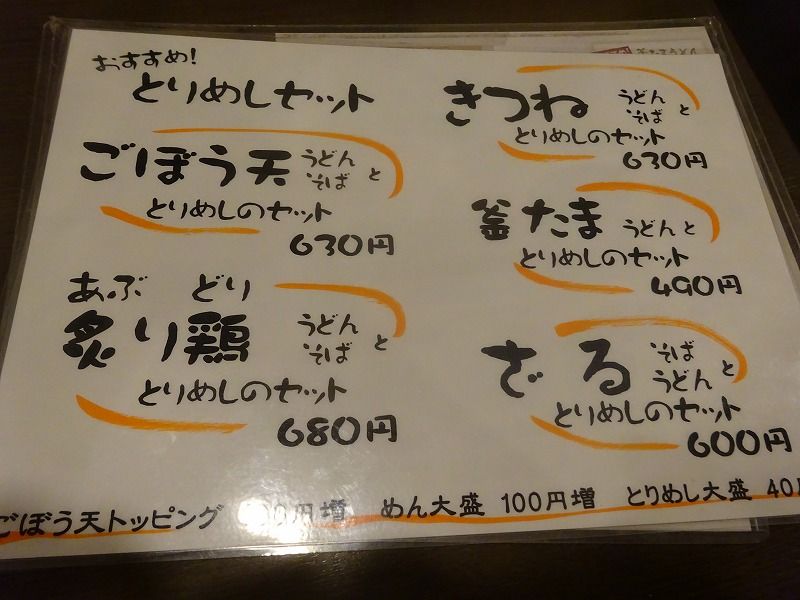 おすすめ!
とりめしセット
ごぼう天 うどん そば と
とりめしのセット
630円
あぶ どり
炙り鶏 うどん そば と
とりめしのセット
680円
きつね うどん そば と
とりめしのセット
630円
釜たま うどんと
とりめしのセット
490円
ざる そば うどん と
とりめしのセット
600円
ごぼう天トッピング 00円増 めん大盛 100円増 とりめし大盛 40